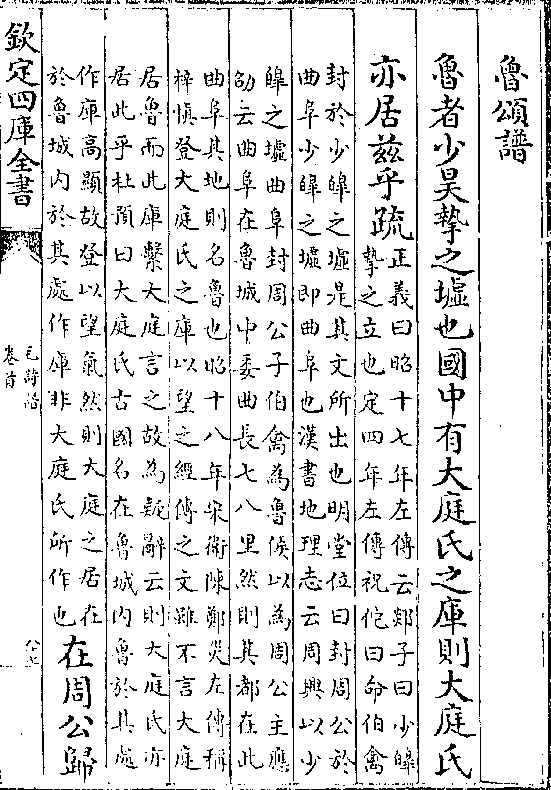 魯頌譜
魯者少昊摯之墟也國中有大庭氏之庫則大庭氏
亦居兹乎疏
正義曰昭十七年左傳云郯子曰少皞
摯之立也定四年左傳祝佗曰命伯禽
封於少皞之墟是其文所出也明堂位曰封周公於
曲阜少皞之墟即曲阜也漢書地理志云周興以少
皞之墟曲阜封周公子伯禽為魯侯以為周公主應
劭云曲阜在魯城中委曲長七八里然則其都在此
曲阜其地則名魯也昭十八年宋衛陳鄭災左傳稱
梓慎登大庭氏之庫以望之經傳之文雖不言大庭
居魯而此庫繫大庭言之故為疑辭云則大庭氏亦
居此乎杜預曰大庭氏古國名在魯城内魯於其處
作庫高顯故登以望氣然則大庭之居在
於魯城内於其處作庫非大庭氏所作也
在周公歸
欽定四庫全書
毛詩譜
卷首